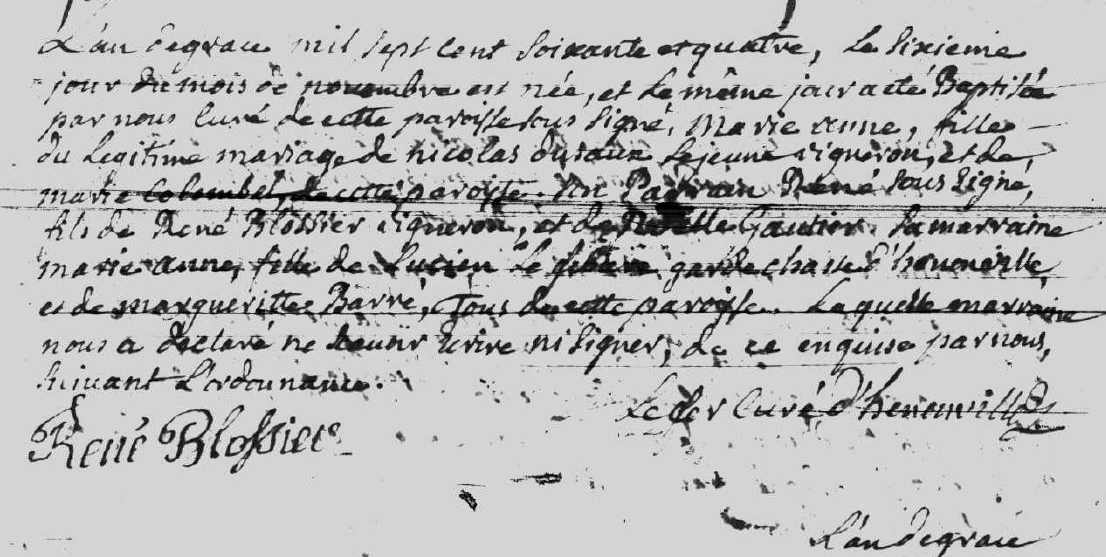 L'an de grace mil sept cent soixante et quatre, le sixieme
jour du mois de novembre est née, et le même jour a été Baptisée
par nous Curé de cette paroisse sous signé, Marie anne, fille
du Legitime mariage de nicolas duvaux Le jeune vigneron, et de
marie Colombel, de cette paroisse. Un Parrain René sous signé,
fils de René Blossier vigneron, et de Gautier. Sa marraine
marie anne, fille de Lucien Le garde chasse d'henonville,
et de margueritte Barré, Tous de cette paroisse. Laquelle marraine
nous a declaré ne scavoir ecrire ni signer, de ce enquise par nous,
suivant L'ordonnance.
René Blossier Curé d'henonville
L'an de grace